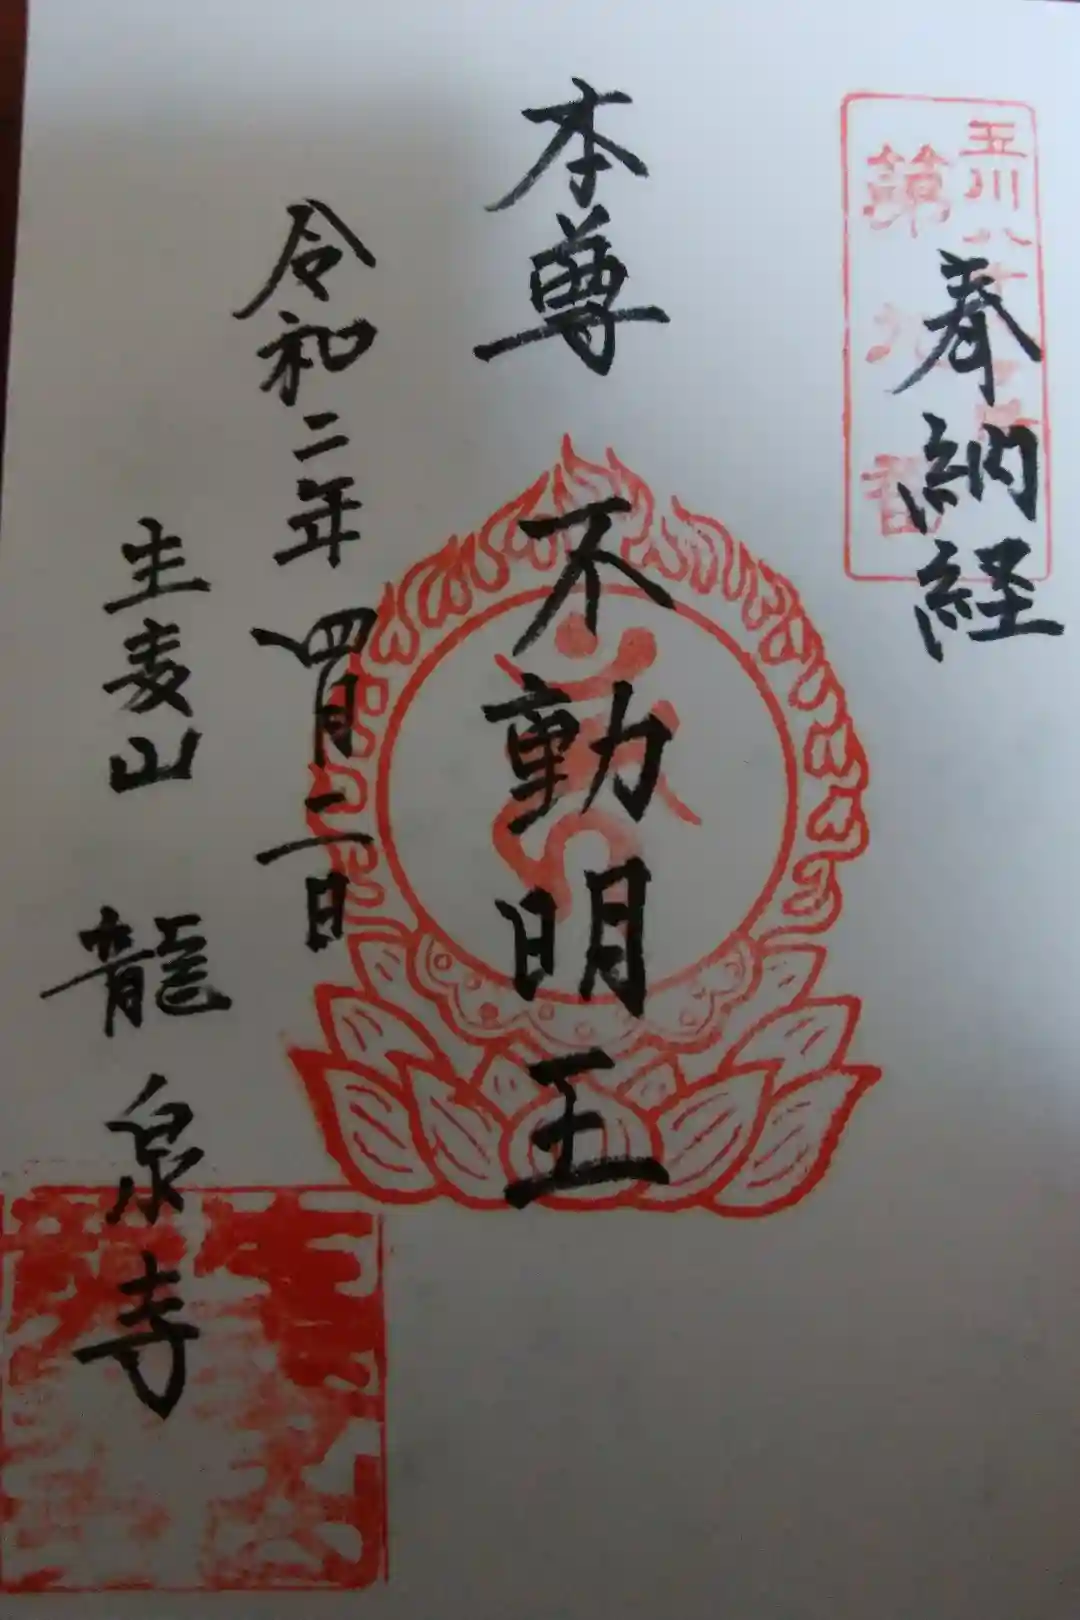 玉川八十
第九番
奉納経
本尊 不動明王
令和二年四月二日
生麦山 龍泉寺